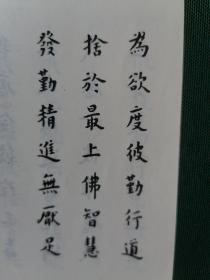 為欲度彼勤行道
捨於最上佛智慧
發勤精進無厭足